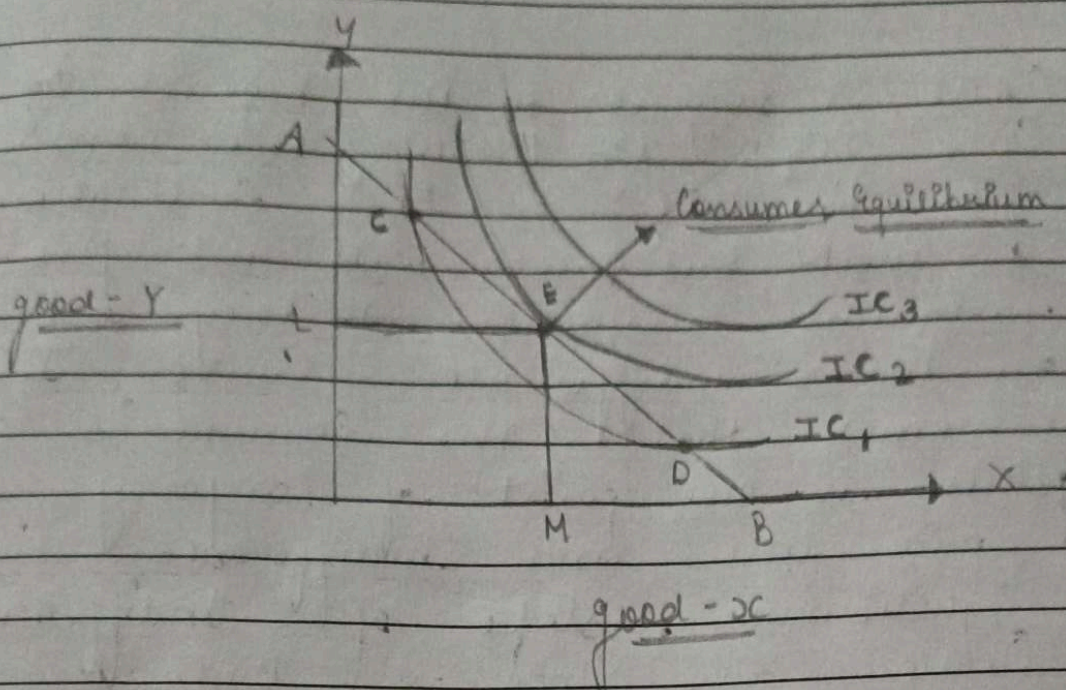 Y
A
C
Consumer Equilibrium
E
good - Y
L
IC3
IC2
IC1
D
X
M
B
good - x